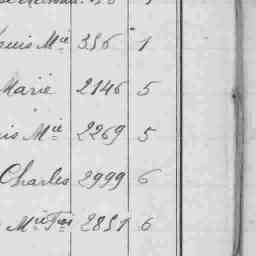 ouis Mie 356 1
Marie 2146 5
is Mie 2269 5
Charles 2999 6
Mie Fois 2851 6